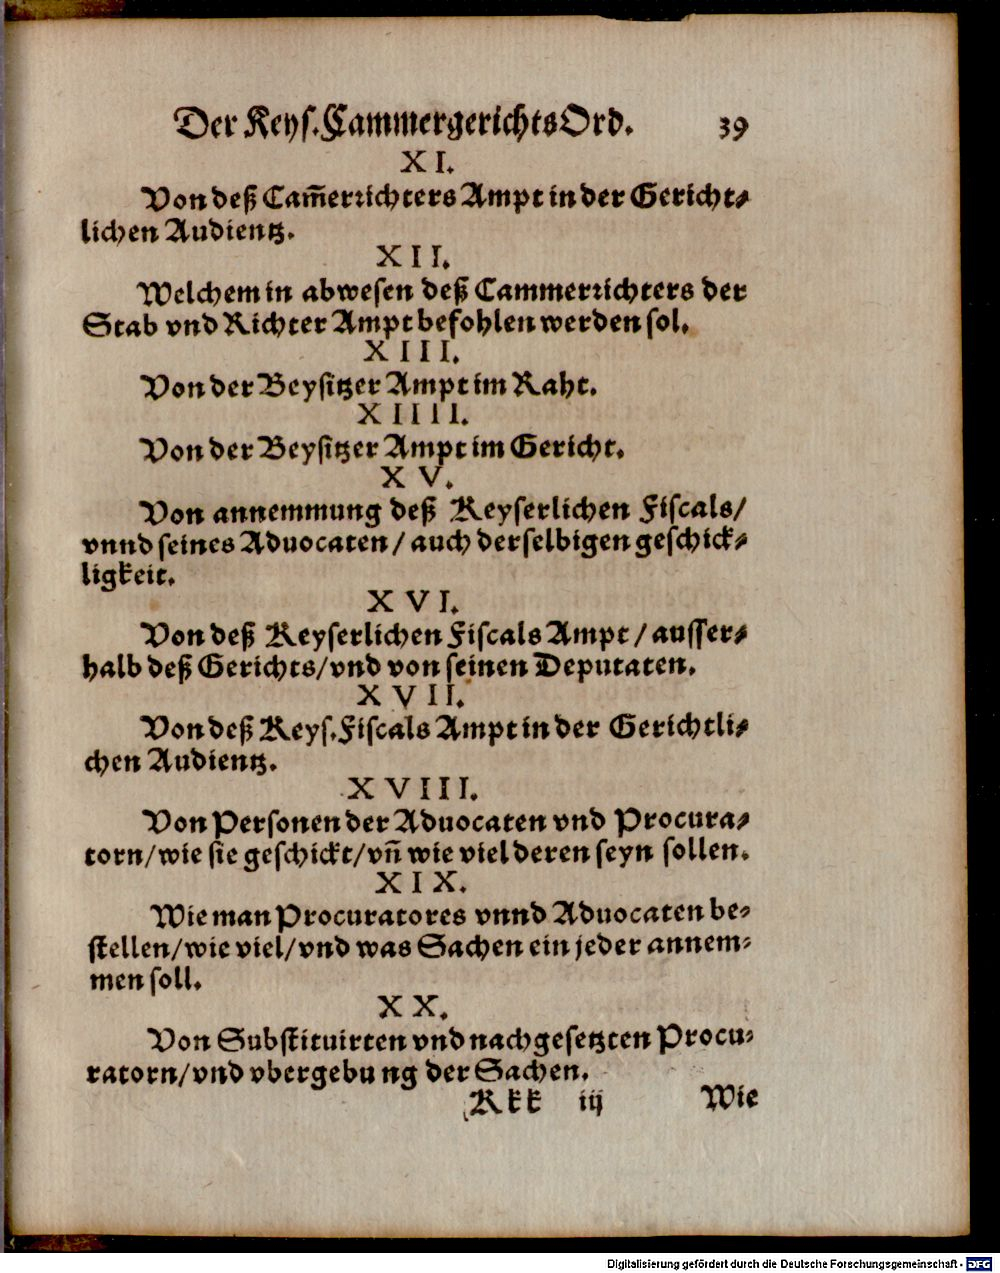 Der Keys. CammergerichtsOrd. 39
XI.
Von deß Cam̄erꝛichters Ampt in der Gericht⸗
lichen Audientz.
XII.
Welchem in abwesen deß Cammerꝛichters der
Stab vnd Richter Ampt befohlen werden sol.
XIII.
Von der Beysitzer Ampt im Raht.
XIIII.
Von der Beysitzer Ampt im Gericht.
XV.
Von annemmung deß Keyserlichen Fiscals/
vnnd seines Aduocaten / auch derselbigen geschick⸗
ligkeit.
XVI.
Von deß Keyserlichen Fiscals Ampt / ausser⸗
halb deß Gerichts/vnd von seinen Deputaten.
XVII.
Von deß Keys. Fiscals Ampt in der Gerichtli⸗
chen Audientz.
XVIII.
Von Personen der Aduocaten vnd Procura⸗
torn/wie sie geschickt/vn̄ wie viel deren seyn sollen.
XIX.
Wie man Procuratores vnnd Aduocaten be⸗
stellen/wie viel/vnd was Sachen ein jeder annem⸗
men soll.
XX.
Von Substituirten vnd nachgesetzten Procu⸗
ratorn/vnd vbergebung der Sachen.
Kkk iij Wie
Digitalisierung gefördert durch die Deutsche Forschungsgemeinschaft - DFG